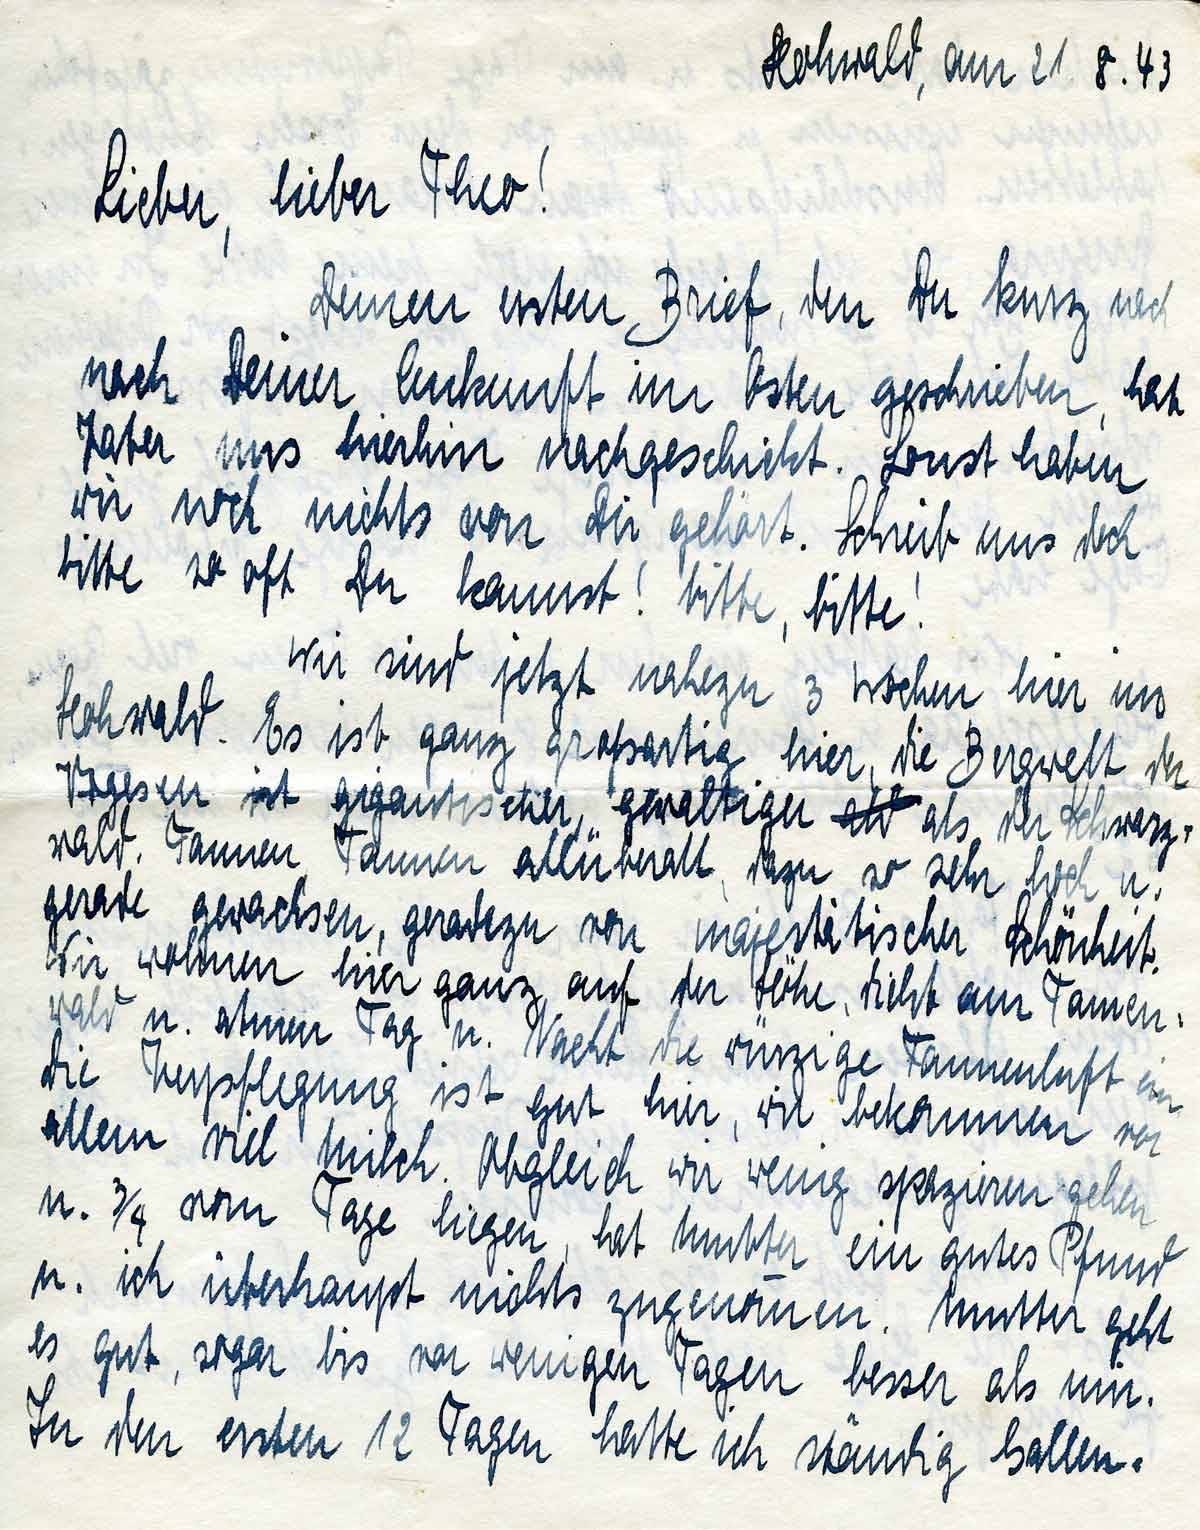 Hohwald, am 21. 8. 43
Lieber, lieber Theo!
Deinen ersten Brief, den Du kurz nach
nach Deiner Ankunft im Osten geschrieben, hat
Vater uns hierhin nachgeschickt. Sonst haben
wir noch nichts von Dir gehört. Schreib uns doch
bitte so oft Du kannst! bitte, bitte!
Wir sind jetzt nahezu 3 Wochen hier in
Hohwald. Es ist ganz großartig hier, die Bergwelt der
Vogesen ist gigantischer, gewaltiger als der Schwarz-
wald. Tannen, Tannen allüberall, dazu so sehr hoch u.
gerade gewachsen, geradezu von majestätischer Schönheit.
Wir wohnen hier ganz auf der Höhe, dicht am Tannen-
wald u. atmen Tag u. Nacht die würzige Tannenluft ein
Die Verpflegung ist gut hier, wir bekommen vor
allem viel Milch. Obgleich wir wenig spazieren gehen
u. 3/4 vom Tage liegen, hat Mutter ein gutes Pfund
u. ich überhaupt nichts zugenom̅en. Mutter geht
es gut, sogar bis vor wenigen Tagen besser als mir.
In den ersten 12 Tagen hatte ich ständig Gallen-